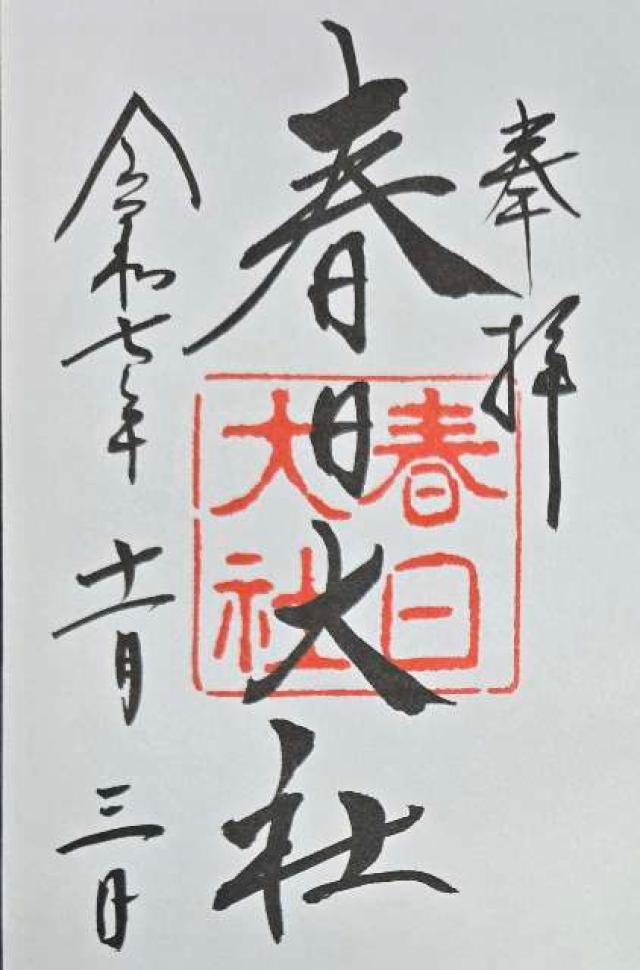 奉拝
春日大社
春日
大社
令和七年十一月三日